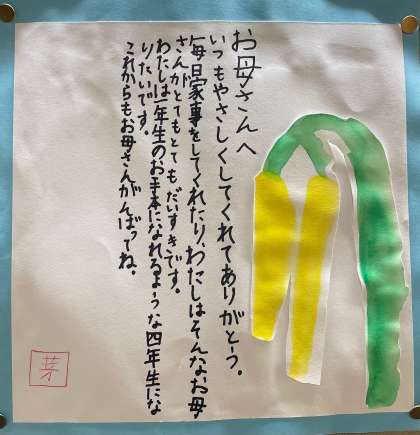 お母さんへ
いつもやさしくしてくれてありがとう。
毎日家事をしてくれたり、わたしはそんなお母
さんがとてもとてもだいすきです。
わたしは一年生のお手本になれるような四年生にな
りたいです。
これからもお母さんがんばってね。
芽